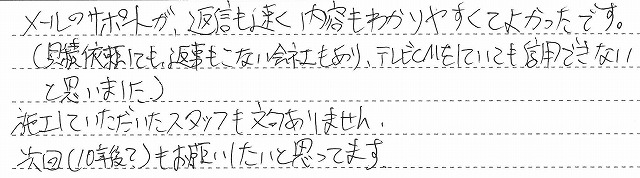 メールのサポートが、返信も速く内容もわかりやすくてよかったです。
(見積依頼しても、返事もこない会社もあり、テレビCMをしていても信用できない
と思いました。)
施工していただいたスタッフも文句ありません。
次回(10年後?)もお願いしたいと思ってます